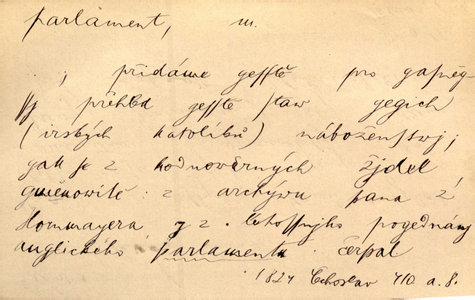 parlament, m.
; přidáme gesstě pro gasněg
ssj přehled gesstě staw gegich
(irských katolíků) náboženstwj;
gak se z hodnowěrných žjdel
gmenowitě z archywu pana z
Hommayera, y z letossnjho pogednánj
anglického parlamentu čerpal
1824 Čechoslav 410. a. 8.